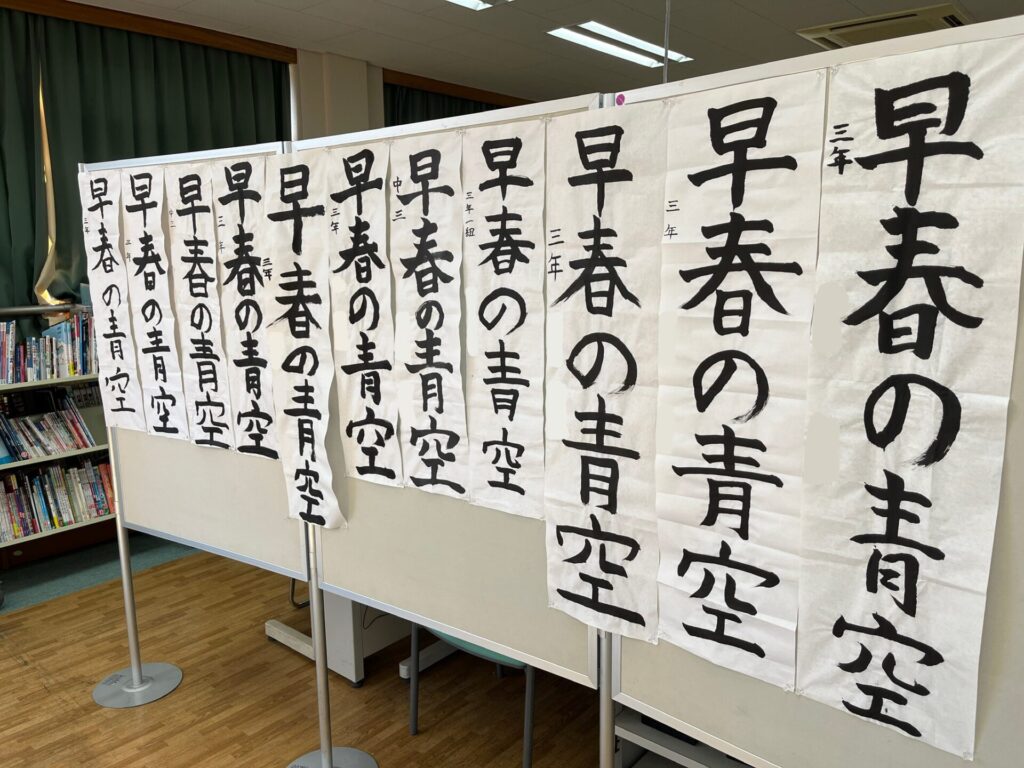 早春の青空
三年
早春の青空
三年
早春の青空
三年
早春の青空
三年一組
早春の青空
中三
早春の青空
三年
早春の青空
三年
早春の青空
三年
早春の青空
早春の青空
早春の青空
三年